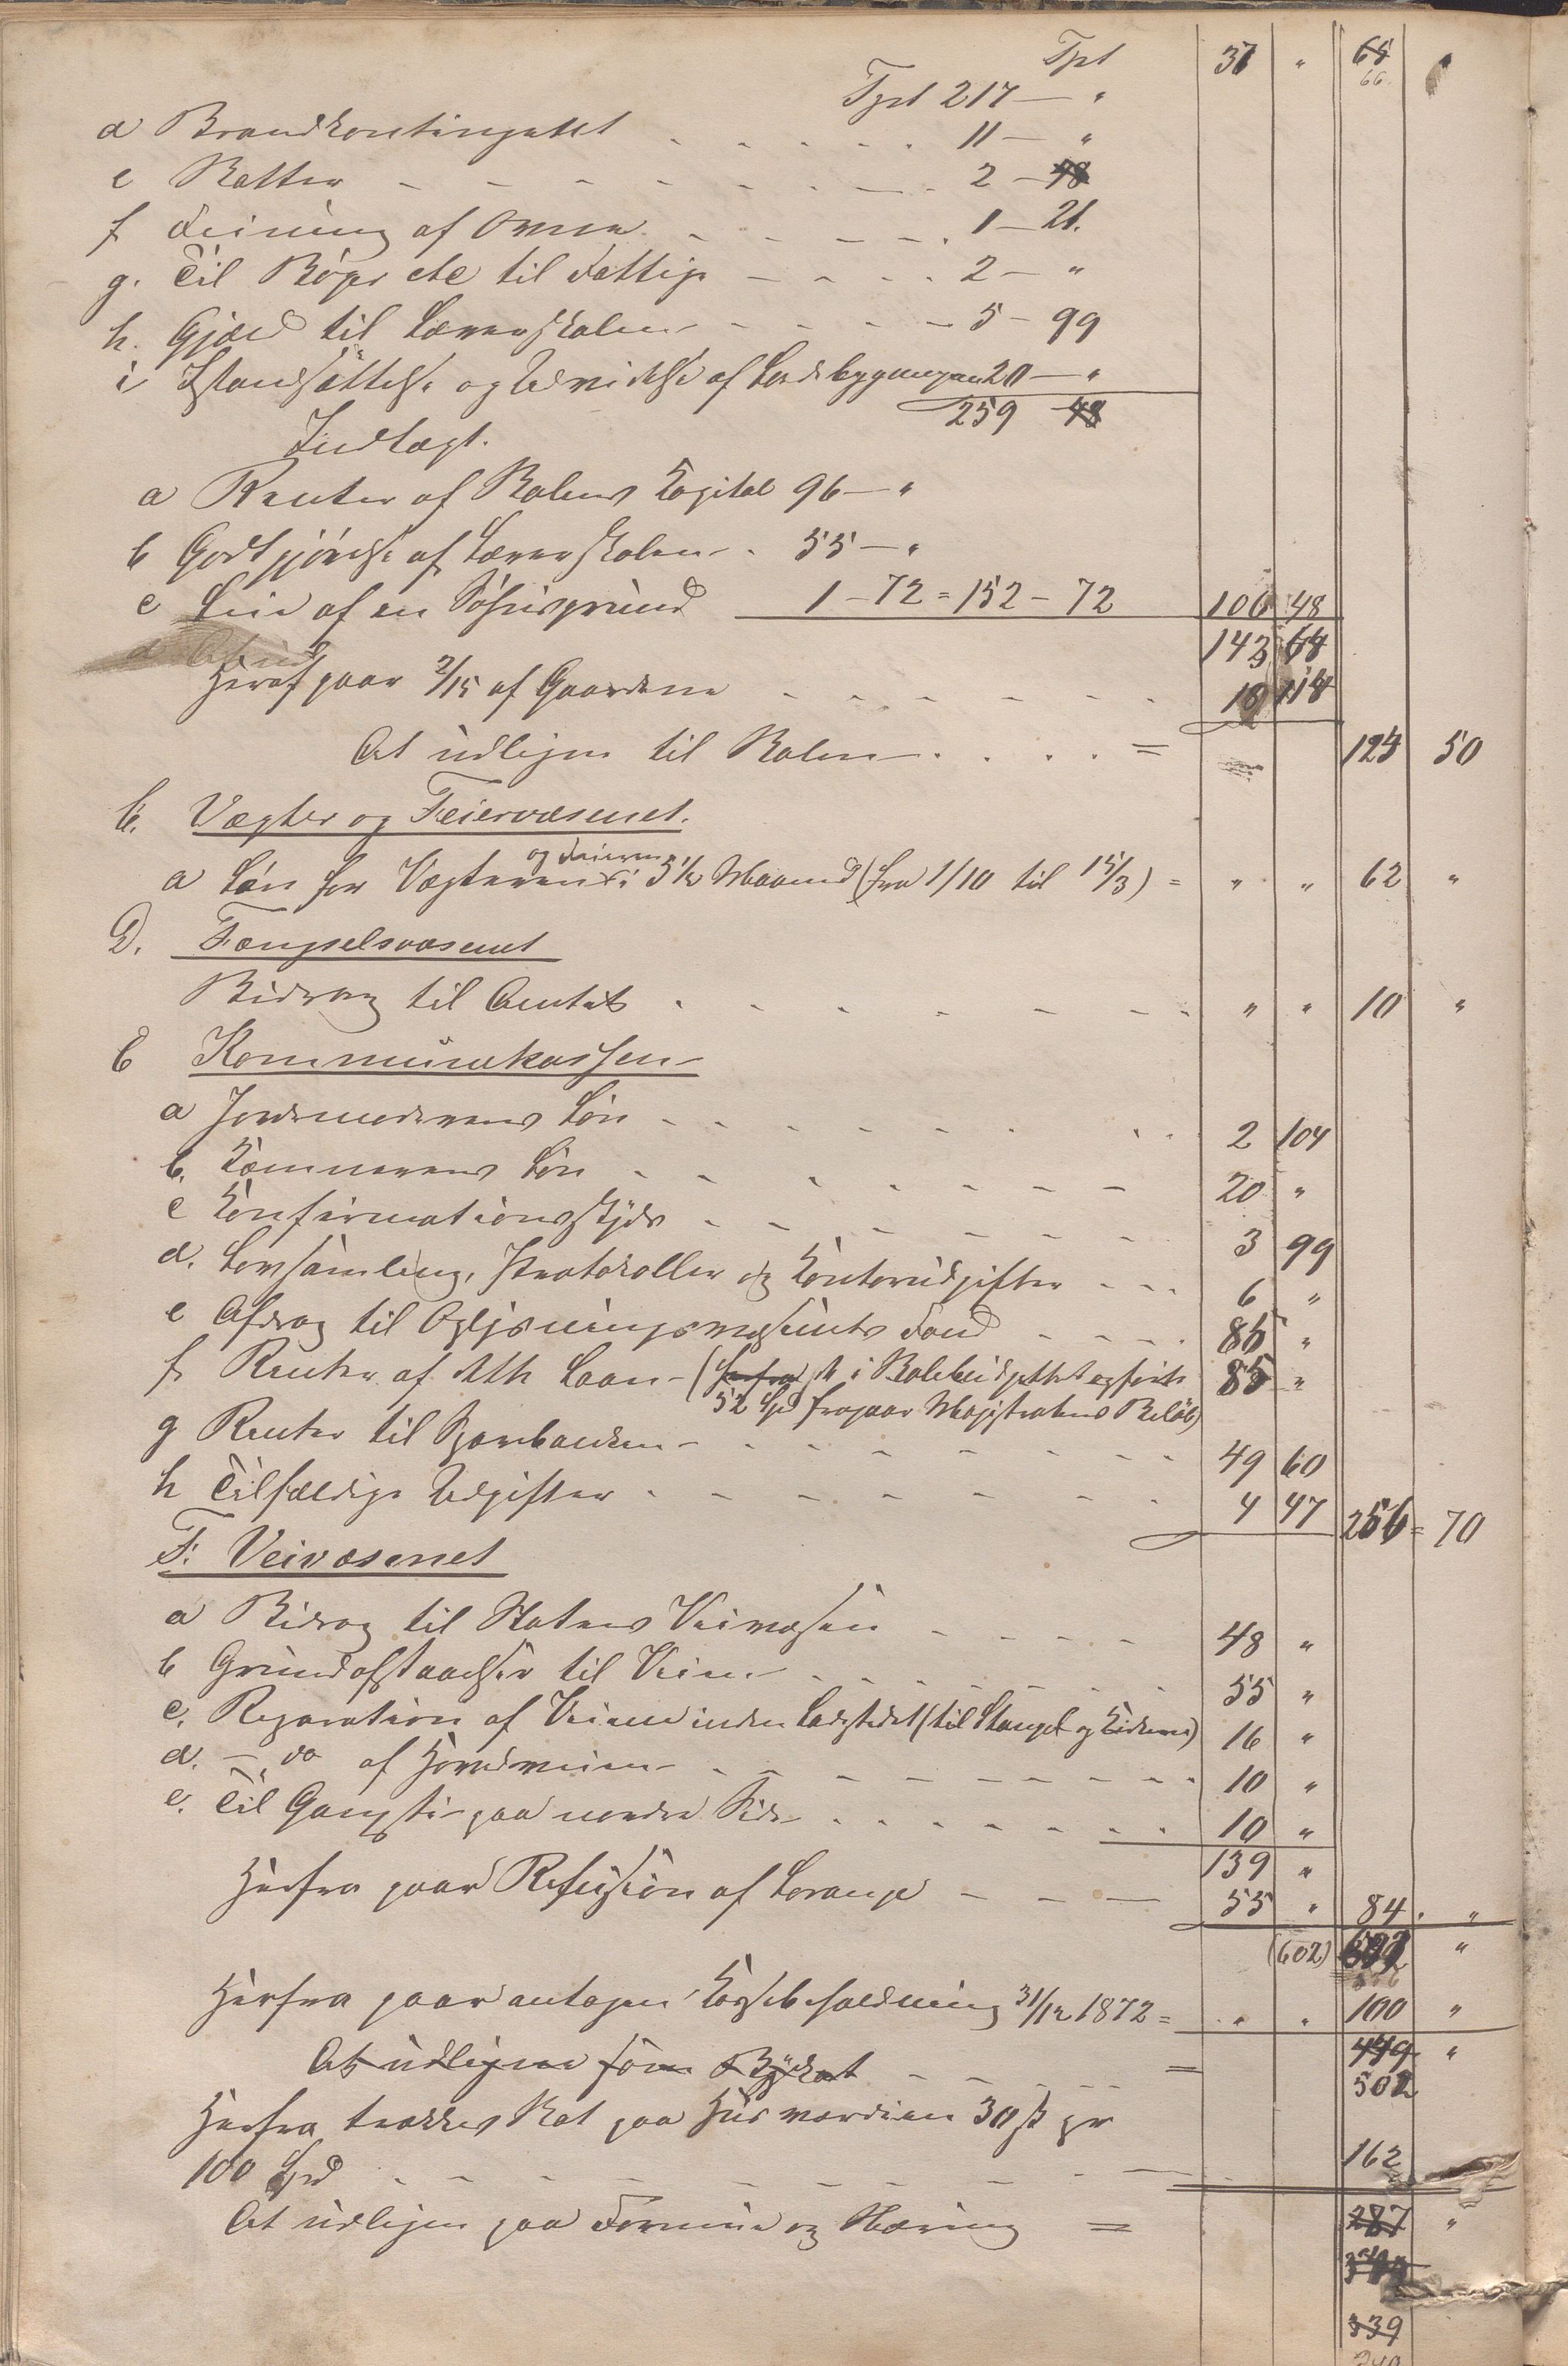 Tpt 37 " 68
66
Tpt 217 — "
d Brandkontingentet 11 — "
e Skatter 2 — 48
f Feining af Ovne 1 — 21.
g. Til Bøger etc til Fattige 2 — "
h. Gjæld til Lærerskolen 5 — 99
i Istandsættelse og Udvidelse af bygningen 20 — "
259 48
Indtægt.
a Renter af Skolens Kapital 96 — "
b Godtgjørelse af Lærerskolen 55 — "
c Leie af en Søhusgrund 1 — 72 = 152 — 72 106 48
143
Heraf paar 2/15 af Gaardene 18 118
At udligne til Skolen = 124 50
C. Vægter og Feiervæsenet.
og Feieren
a Løn for Vægteren i 5 1/2 Maaned (fra 1/10 til 15/3) = " " 62 "
D. Fængselsvæsenet
Bidrag til Amtet " " 10 "
E Kommunekassen
a Jordemoderens Løn 2 104
b. Kæmnerens Løn 20 "
c Konfirmationsskyds 3 99
d. Lovsamling, Protokoller og Kontorudgifter 6 "
e Afdrag til Oplysningsvæsenets Fond 85 "
f Renter af dette Laan ( i Skolebudgettet opførte 85 "
52 Spd fragaar Magistratens Beløb)
g Renter til Sparebanken 49 60
h Tilfældige Udgifter 4 47 256 = 70
F. Veivæsenet
a Bidrag til Statens Veivæsen 48 "
b Grundafstaaelser til Veien 55 "
c. Reparation af Veiene inden Ladestedet (til Stanget og Kirken) 16 "
d. — do af Hovedveien 10 "
e. Til Gangsti paa nordre Side 10 "
139 "
Herfra gaar Refusion af Lorange 55 " 84 . "
(602) 602 "
Herfra gaar antagen Kassebeholdning 31/12 1872 = " " 100 "
At udligne som Byskat = 449 "
502
Herfra trækkes Skat paa Husværdien 30 ß pr
100 Spd 162
At udligne paa Formue og Næring = 287 "
339